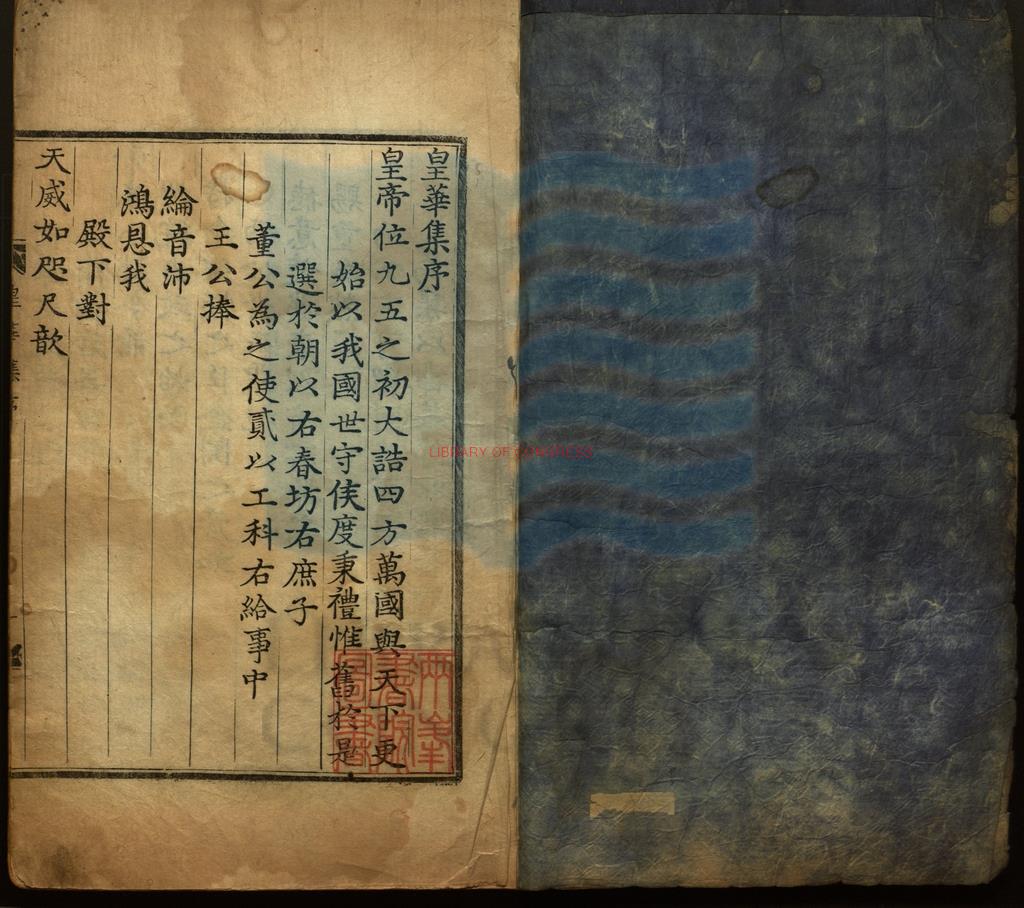 皇華集序
皇帝位九五之初大誥四方萬國與天下更
始以我國世守侯度秉禮惟舊於是
選於朝以右春坊右庶子
董公為之使貳以工科右給事中
王公捧
綸音沛
鴻恩我
殿下對
天威如咫尺歆
LIBRARY OF CONGRESS